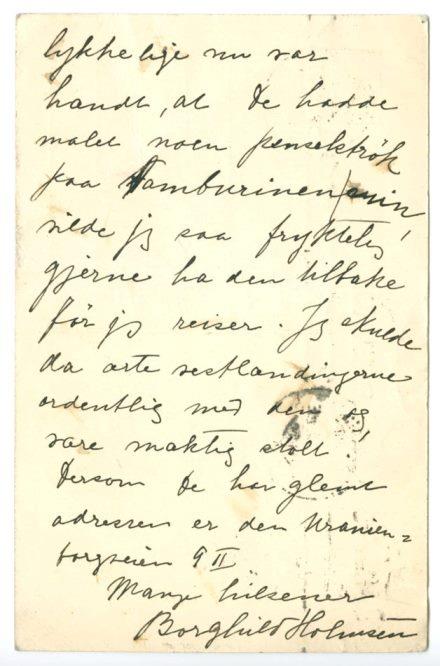 lykkelige nu var
hændt, at De hadde
malet noen penselströk
paa Tamburinen min,
vilde jeg saa frygtelig
gjerne ha den tilbake
för jeg reiser. Jeg skulde
da erte vestlændingerne
ordentlig med den og
være mæktig stolt.
Dersom De har glemt
adressen er den Uranien=
borgveien 9 II
Mange hilsener
Borghild Holmsen